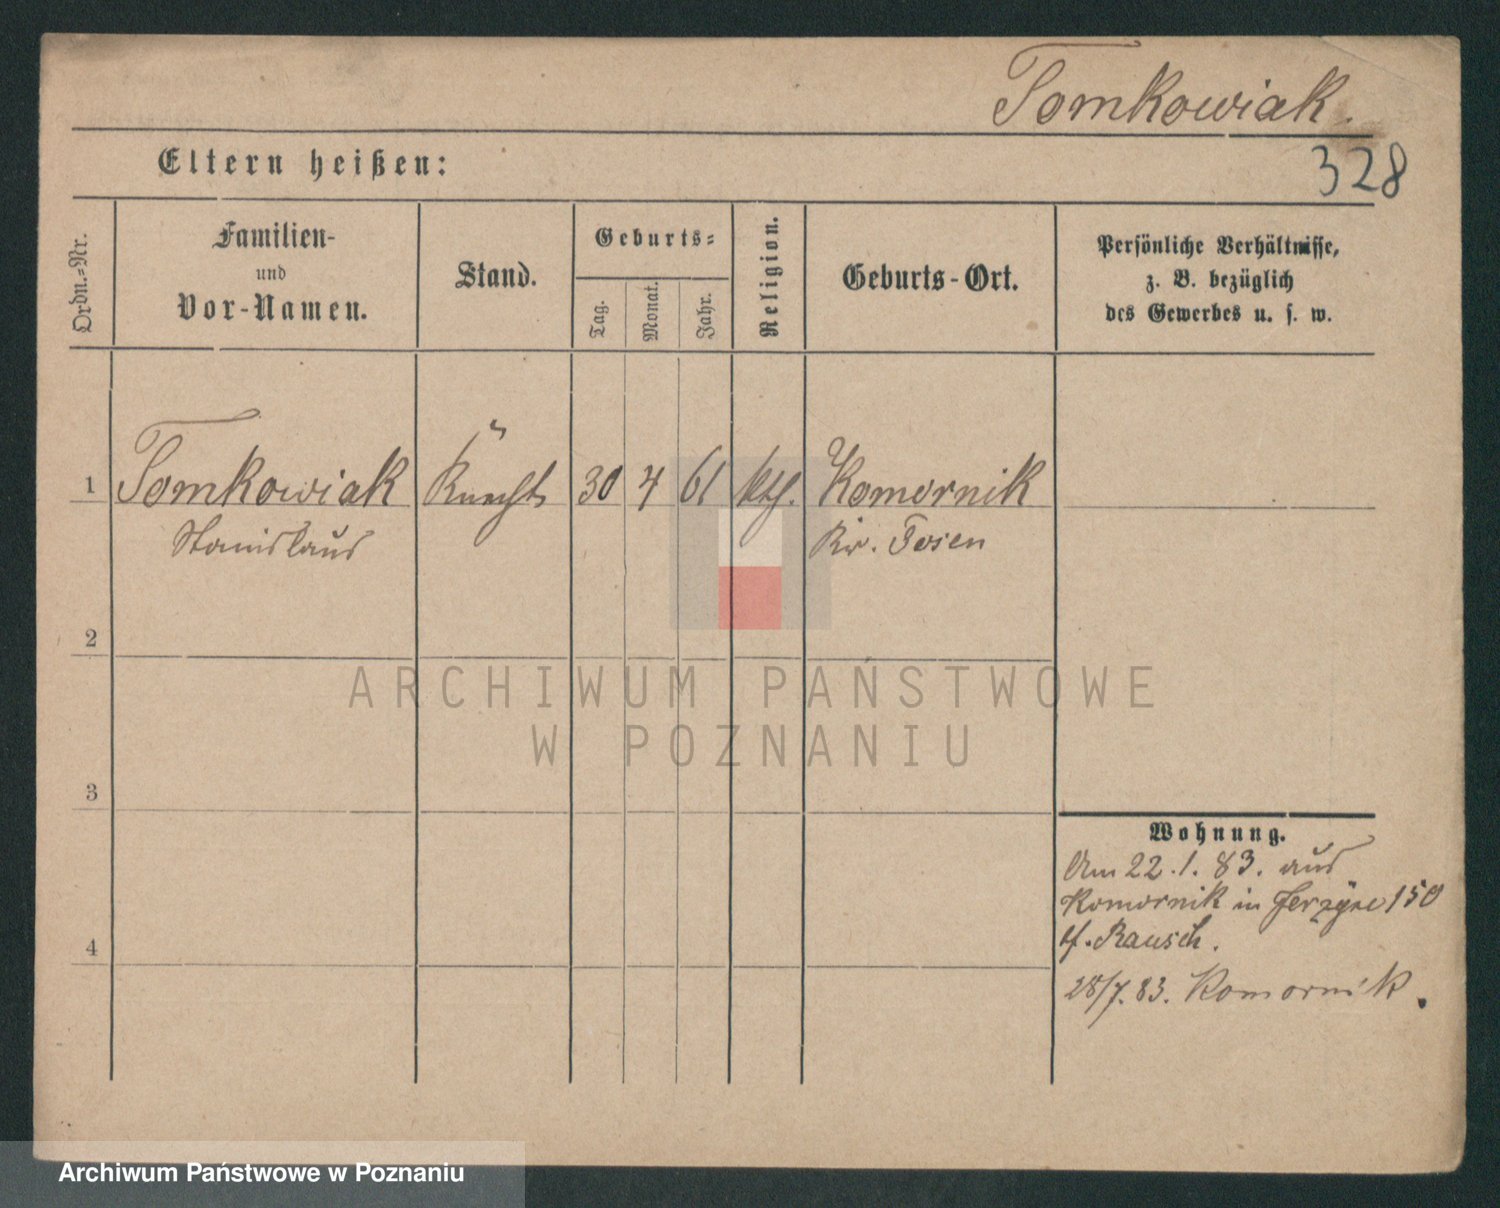 Tomkowiak.
328
Eltern heißen:
Ordn.-Nr.
Familien-
und
Vor-Namen.
Stand.
Geburts-
Tag.
Monat.
Jahr.
Religion.
Geburts-Ort.
Persönliche Verhältnisse,
z. B. bezüglich
des Gewerbes u. s. w.
1 Tomkowiak Knecht 30 4 61 kth. Komornik
Stanislaus Kr. Posen
2
3
4
Wohnung.
Am 22.1.83. aus
Komornik in Jerzyce 150
b. Rausch.
28/7.83. Komornik.
ARCHIWUM PAŃSTWOWE
W POZNANIU
Archiwum Państwowe w Poznaniu